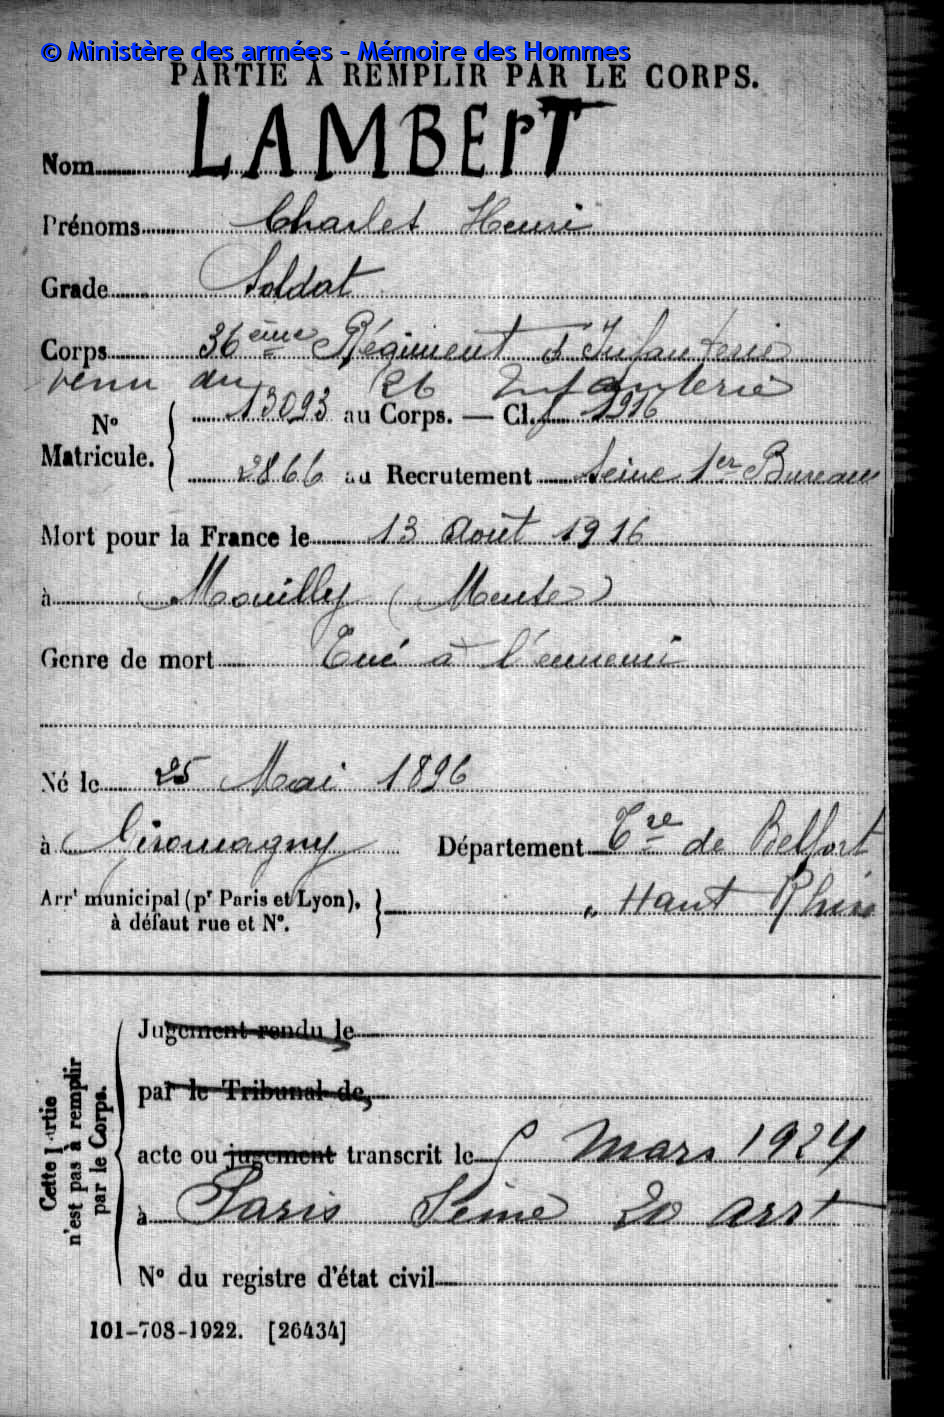 © Ministère des armées - Mémoire des Hommes
PARTIE A REMPLIR PAR LE CORPS.
Nom LAMBErT
Prénoms Charles Henri
Grade Soldat
Corps 36ème Régiment d'Infanterie
venu du 26 Infanterie
N° Matricule. 13093 au Corps. — Cl. 1916
2866 au Recrutement Seine 1er Bureau
Mort pour la France le 13 Août 1916
à Mouilly (Meuse)
Genre de mort Tué à l'ennemi
Né le 25 Mai 1896
à Giromagny Département Tre de Belfort
Arrt municipal (pr Paris et Lyon), à défaut rue et N°. „ Haut Rhin
Cette partie n'est pas à remplir par le Corps.
Jugement rendu le
par le Tribunal de,
acte ou jugement transcrit le Mars 1924
à Paris Seine 20 arrt
N° du registre d'état civil
101-708-1922. [26434]